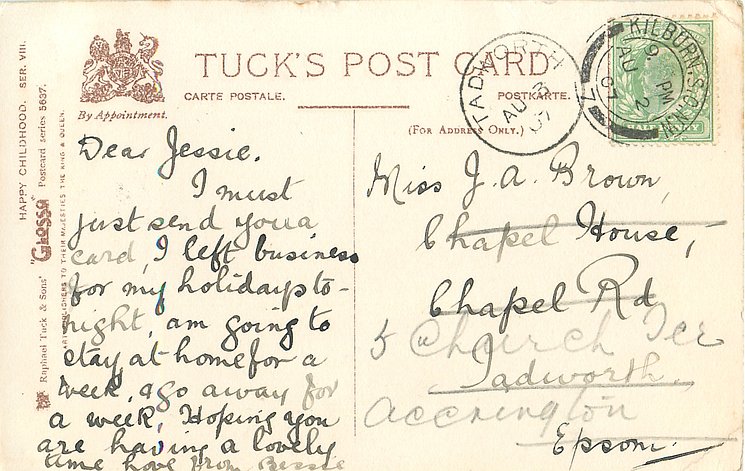 HAPPY CHILDHOOD. SER. VIII.
"Glosso" Postcard series 5637.
Raphael Tuck & Sons'
ART PUBLISHERS TO THEIR MAJESTIES THE KING & QUEEN.
By Appointment.
TUCK'S POST CARD
CARTE POSTALE.
POSTKARTE.
(For Address Only.)
TADWORTH
AU 3
07
KILBURN.S.O.N.W
9. PM
AU 2
07
Dear Jessie.
I must
just send you a
card, I left business
for my holidays to-
night, am going to
stay at home for a
week, & go away for
a week, Hoping you
are having a lovely
time love from Bessie
Miss J. A. Brown,
Chapel House,
Chapel Rd
5 Church Ter
Tadworth,
Accrington
Epsom.